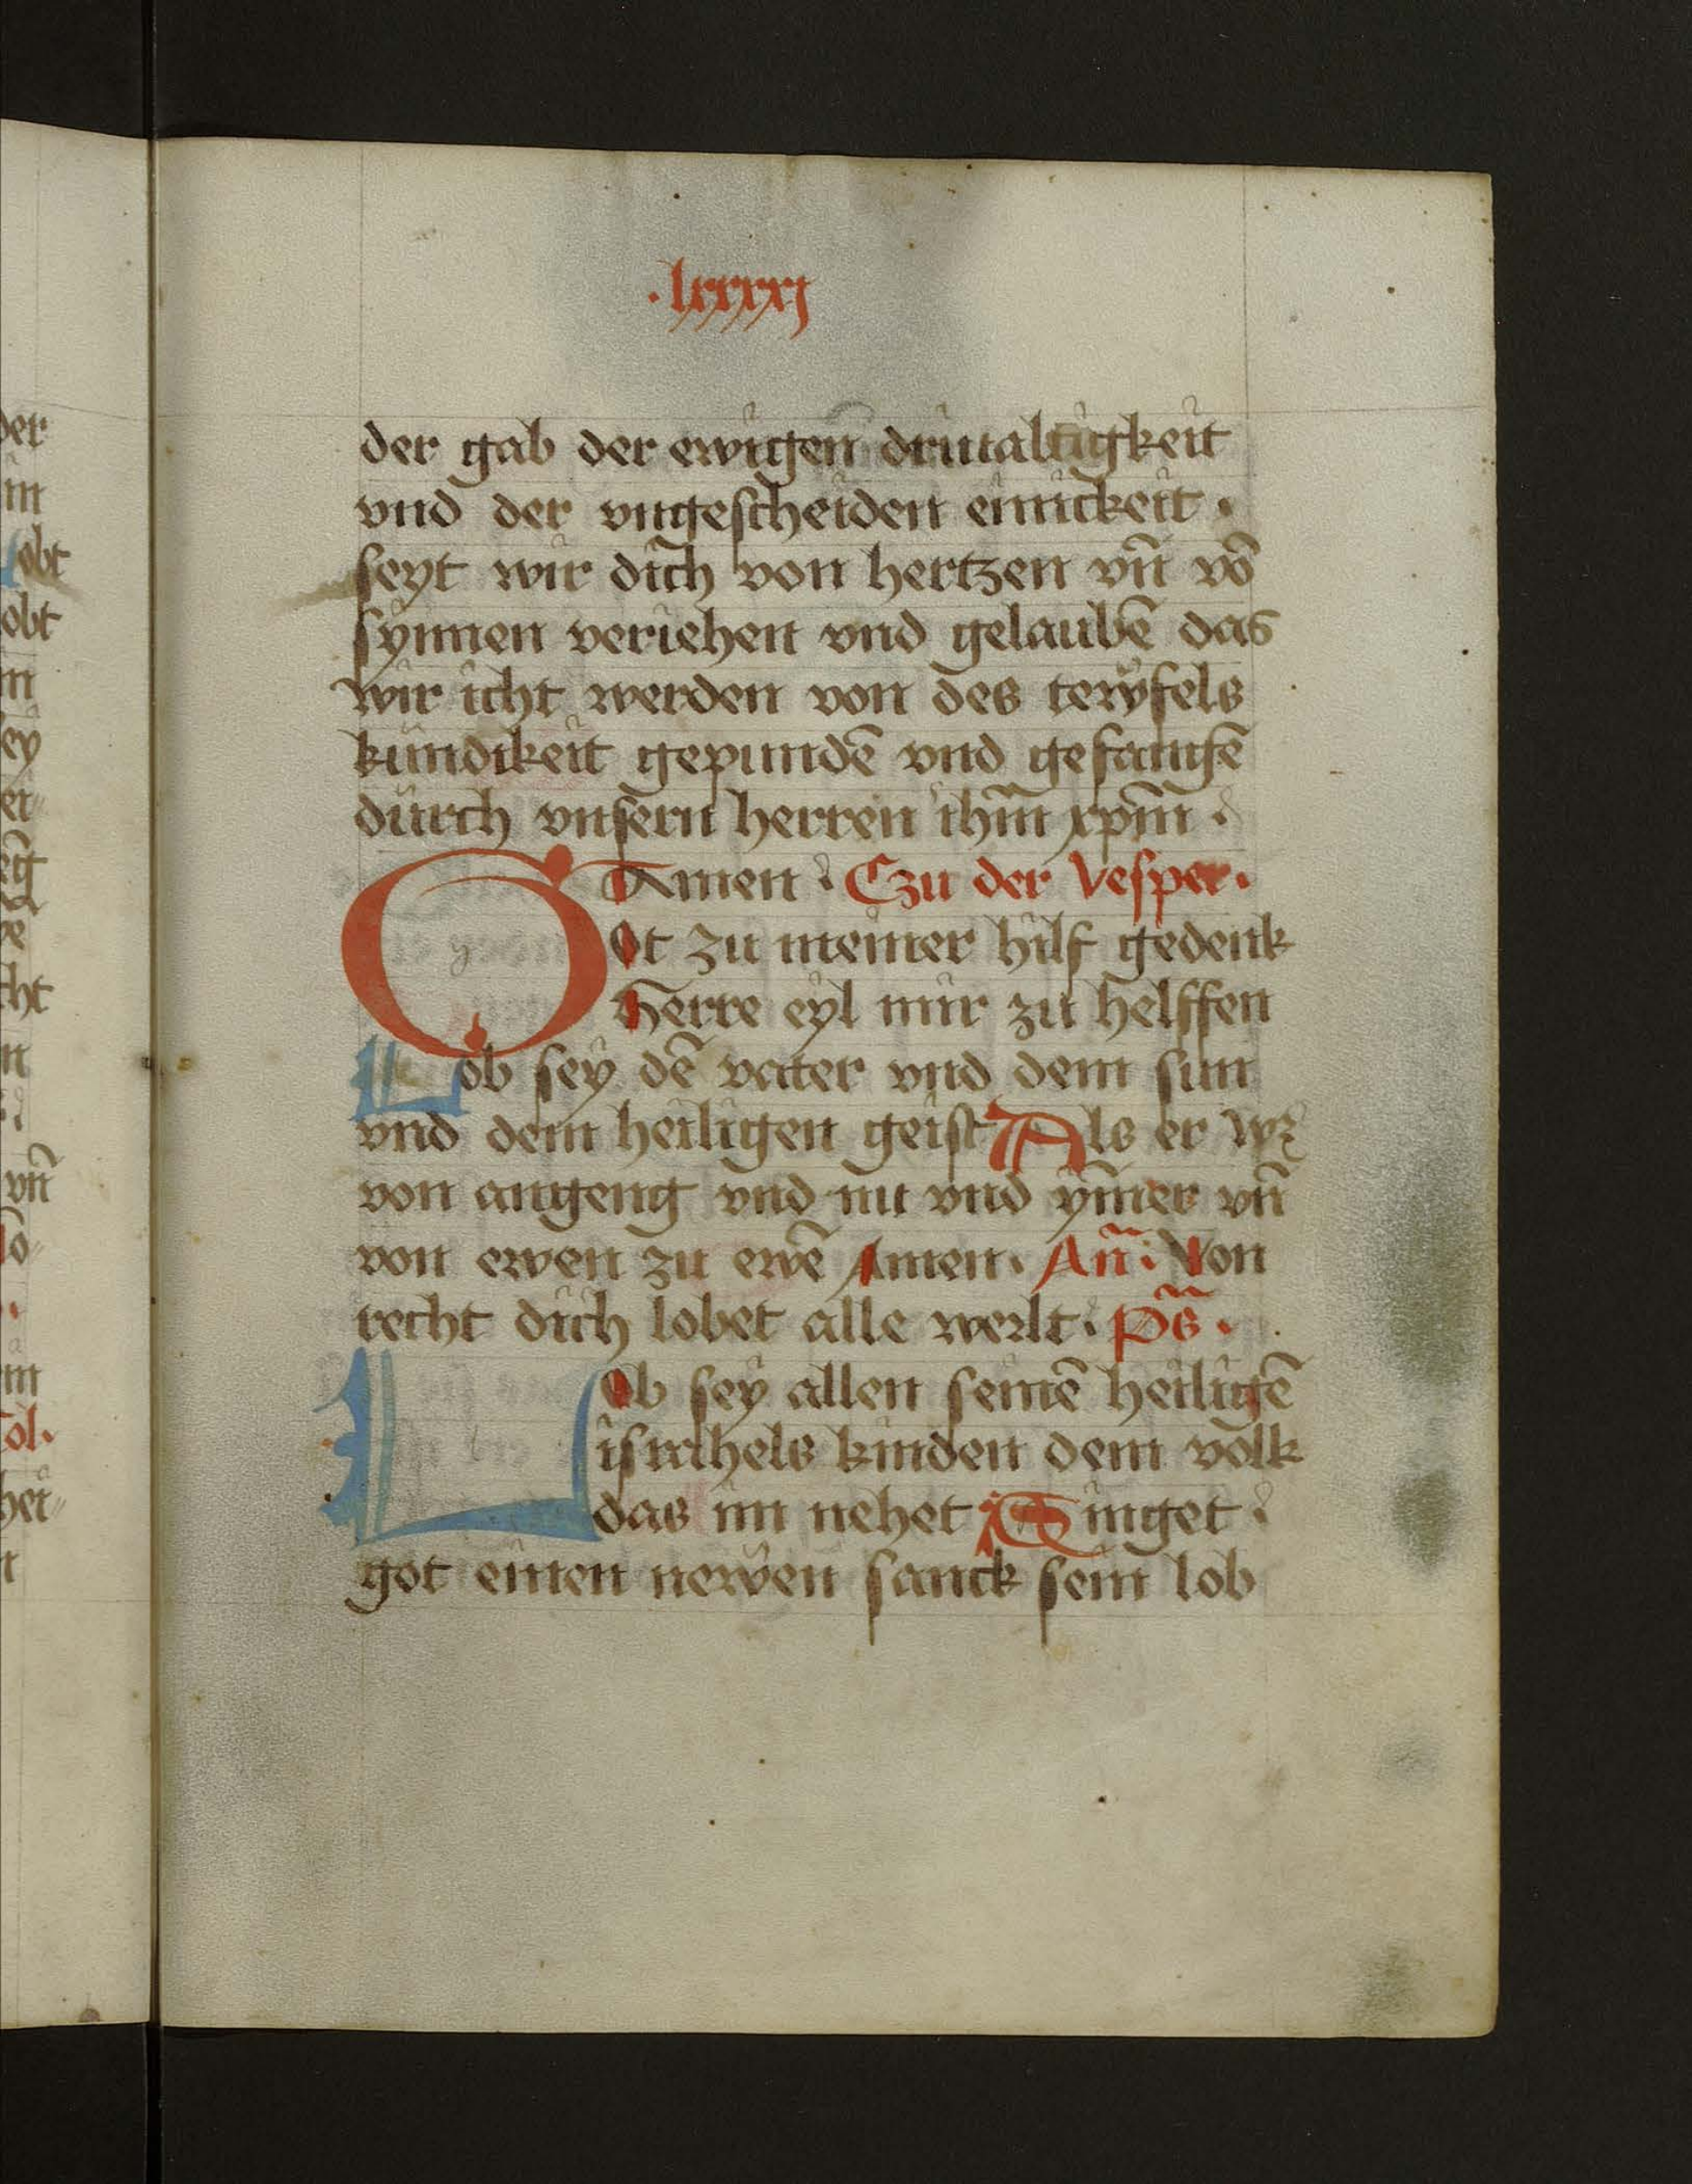 .lxxxxj
der gab der ewigen driualtigkeit
vnd der vngescheiden einickeit .
seyt wir dich von hertzen vn̄ vō
synnen veriehen vnd gelaubē das
wir icht werden von des tewfels
kundikeit gepundē vnd gefangē
durch vnsern herren ihm̄ xpm̄ .
Amen . Czu der Vesper .
Got zu meiner hilf gedenk
Herre eyl mir zu helffen
Lob sey dē vater vnd dem sun
vnd dem heiligen geist Als er wz
von angeng vnd nu vnd ym̄er vn̄
von ewen zu ewē Amen . An̄ . Von
recht dich lobet alle werlt . Ps̄ .
Lob sey allen seinē heiligē
israhels kinden dem volk
das im nehet Singet .
got einen newen sanck sein lob